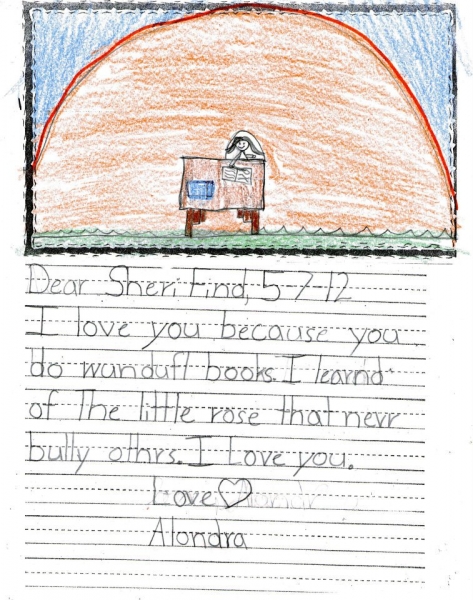 Dear Sheri Find, 5-7-12
I love you because you
do wunduft books. I learnd
of The little rose that nevr
bully othrs. I Love you.
Love♡
Alondra